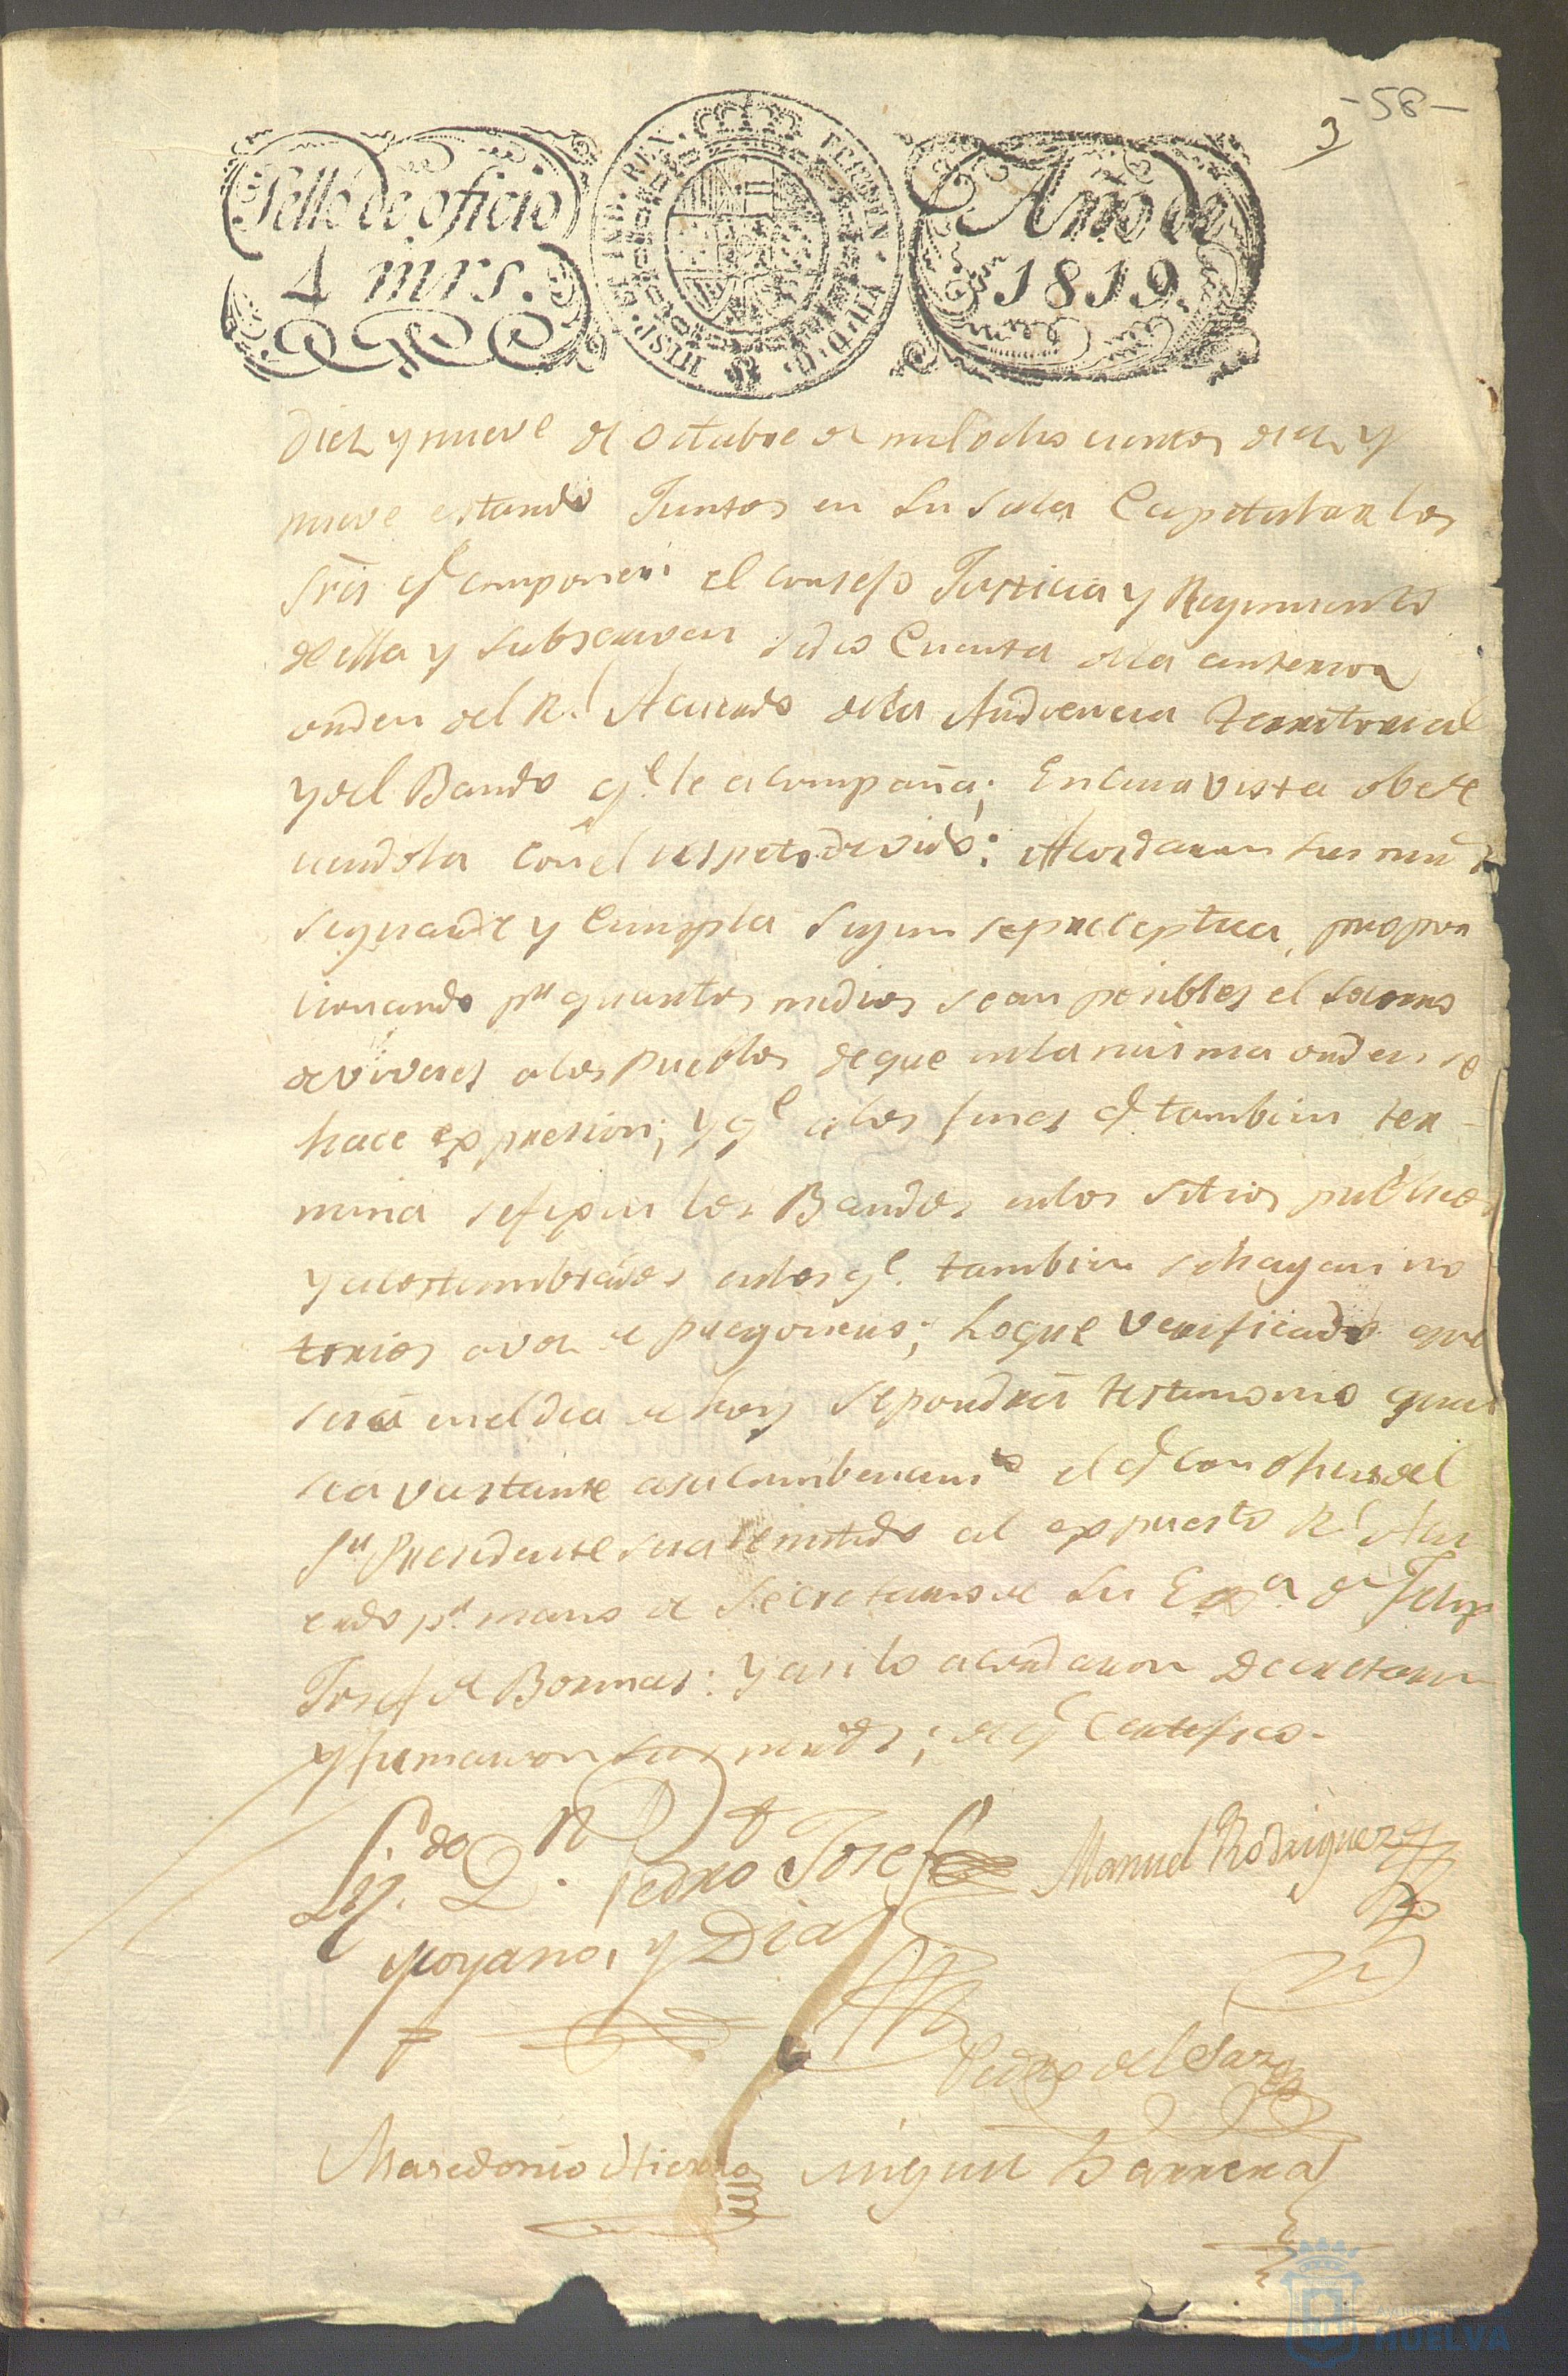 -58-
3
Sello de oficio
4 mrs.
HISP. ET IND. REX. FERDIN. VII. D. G.
Año de
1819.
diez y nueve de Octubre de mil ocho cientos diez y
nueve estando Juntos en su sala Capitular los
Sres. qe. componen el consejo Justicia y Regimiento
de ella y subscriven se dio Cuenta de la anterior
orden del Rl. Acuerdo de la Audiencia territorial
y del Bando qe. le acompaña; En cuia vista obede
ciendola con el respeto devido: Acordaron sus mrds
se guarde y Cumpla segun se preceptua, propor
cionando pr. quantos medios sean posibles el socorro
de viveres a los Pueblos de que en la misma orden se
hace expresion; y qe. a los fines q. tambien ter-
mina se fixen los Bandos en los sitios publicos
y acostumbrados en los qe. tambien se hagan no
torios a voz de pregonero; Lo que verificado que
será en el dia de hoy se pondrá testimonio que
sea vastante a su cumbencimto. el q. con oficio del
Sr. Presidente sera remitido al expuesto Rl. Acu
erdo pr. mano de Secretario de Su Exa. Dn. Felipe
Josef de Bormas: Y asi lo acordaron Decretaron
y firmaron sus mrds; de q. Certifico.
Licdo. Dn. Pedro Josef
Moyano, y Diaz
Manuel Rodriguez
Pedro del Sarz
Masedonio Hierro
Miguel Barrera
AYUNTAMIENTO DE
HUELVA